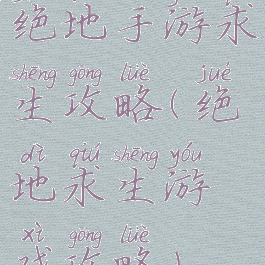 绝地手游求
shēng gōng lüè jué
生攻略(绝
dì qiú shēng yóu
地求生游
xì gōng lüè
戏攻略)